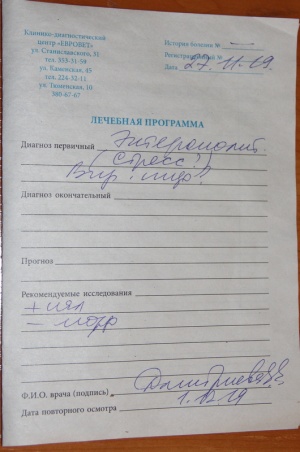 Клинико-диагностический
центр «ЕВРОВЕТ»
ул. Станиславского, 31
тел. 353-31-54
ул. Каменская, 45
тел. 224-32-11
ул. Тюменская, 10
380-67-67
История болезни №
Регистрационный №
Дата 27.11.19.
ЛЕЧЕБНАЯ ПРОГРАММА
Диагноз первичный Энтероколит.
(стресс?)
Вир. инф?
Диагноз окончательный
Прогноз
Рекомендуемые исследования
Ф.И.О. врача (подпись)
Дата повторного осмотра 1.12.19